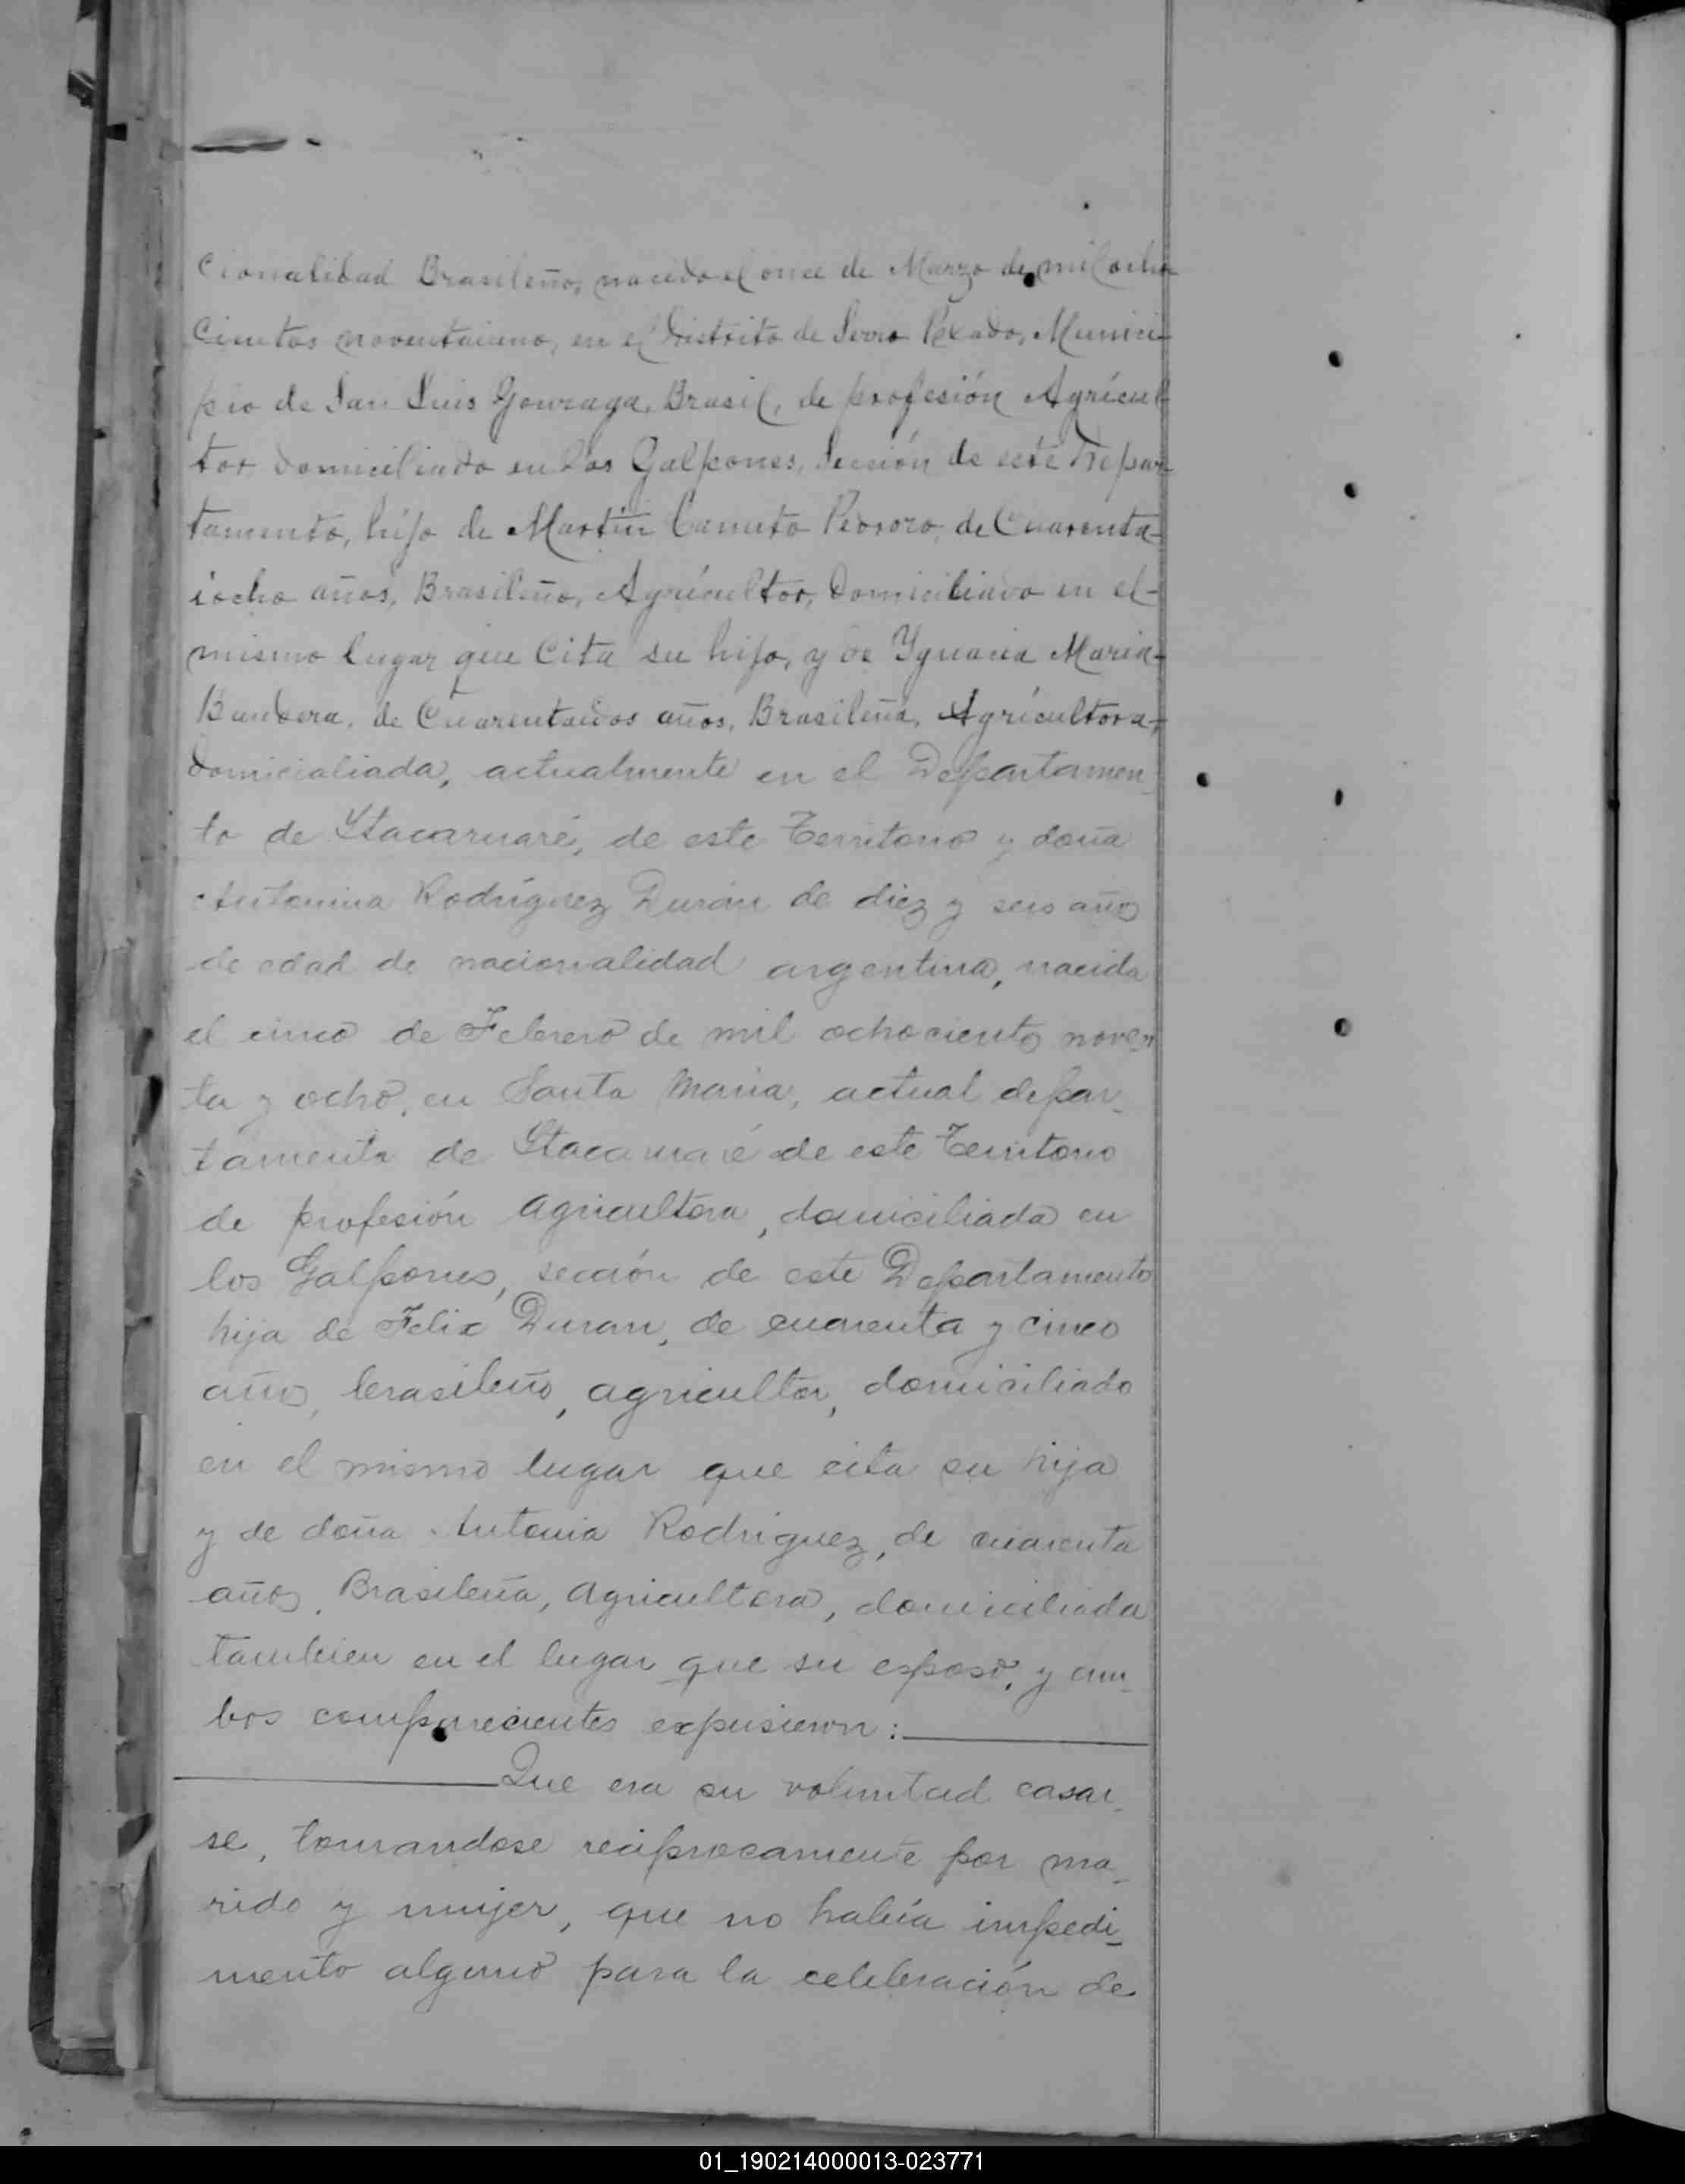 cionalidad Brasileño, nacido el once de Marzo de mil ocho
cientos noventaiuno, en el Distrito de Serro Pelado, Munici-
pio de San Luis Gonzaga, Brasil, de profesión Agrícul-
tor, domiciliado en los Galpones, Sección de este Depar-
tamento, hijo de Martín Canuto de Cuarenta-
iocho años, Brasileño, Agrícultor, domiciliado en el-
mismo lugar que Cita su hijo, y de Ygnacia Maria-
Bandera, de Cuarentaidos años, Brasileña, Agrícultora,
domicialiada, actualmente en el Departamen-
to de Ytacaruaré, de este Territorio y doña
Antonina Rodríguez Durán de diez y seis años
de edad de nacionalidad argentina, nacida
el cinco de Febrero de mil ochocientos noven
ta y ocho, en Santa Maria, actual depar-
tamento de Ytacaruaré de este Territorio
de profesión agricultora, domiciliada en
los Galpones, sección de este Departamento
hija de Felix Duran, de cuarenta y cinco
años, brasileño, agricultor, domiciliado
en el mismo lugar que cita su hija
y de doña Antonia Rodriguez, de cuarenta
años, Brasileña, agricultora, domiciliada
tambien en el lugar que su esposo, y am-
bos comparecientes expusieron:
Que era su voluntad casar-
se, tomandose reciprocamente por ma-
rido y mujer, que no había impedi-
mento alguno para la celebración de
01_190214000013-023771